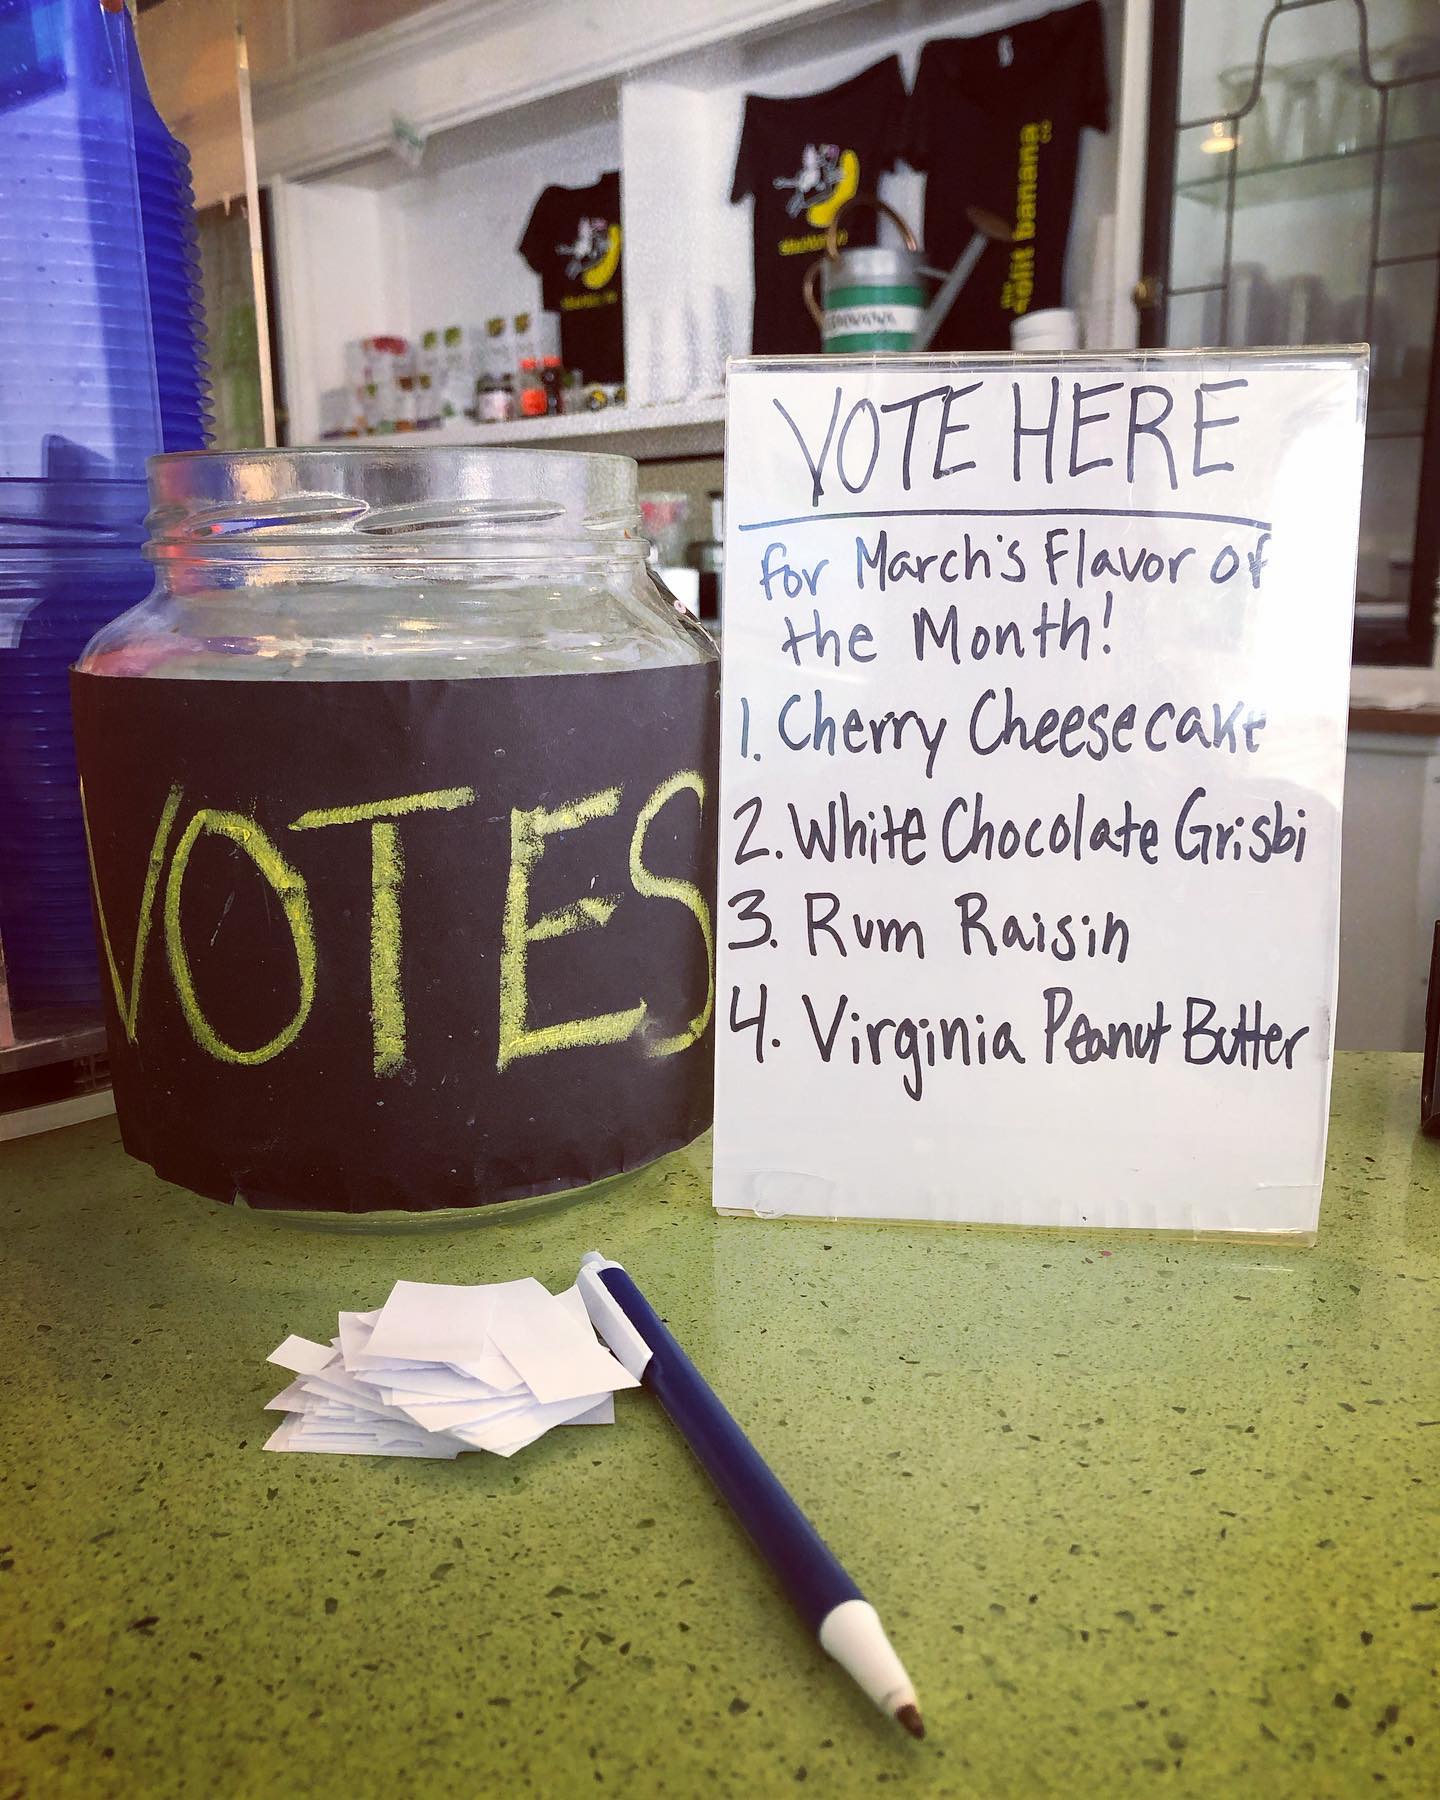 split banana
co
VOTES
VOTE HERE
for March's Flavor of
the Month!
1. Cherry Cheesecake
2. White Chocolate Grisbi
3. Rum Raisin
4. Virginia Peanut Butter